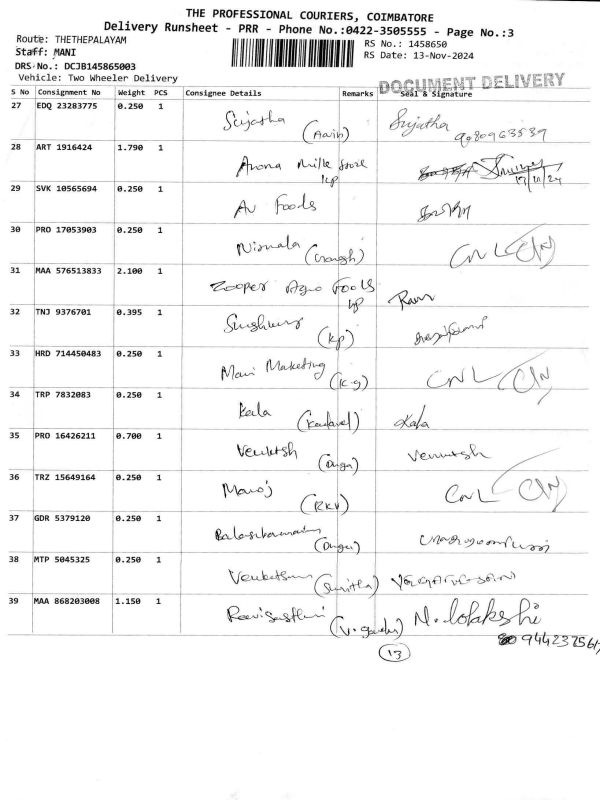 THE PROFESSIONAL COURIERS, COIMBATORE
Delivery Runsheet - PRR - Phone No.:0422-3505555 - Page No.:3
Route: THETHEPALAYAM
RS No.: 1458650
Staff: MANI
RS Date: 13-Nov-2024
DRS No.: DCJB145865003
Vehicle: Two Wheeler Delivery
DOCUMENT DELIVERY
S No Consignment No Weight PCS Consignee Details Remarks Seal & Signature
27 EDQ 23283775 0.250 1
Sujatha Sujatha
28 ART 1916424 1.790 1
Milk
29 SVK 10565694 0.250 1
AV Foods
30 PRO 17053903 0.250 1
Nirmala CNL
31 MAA 576513833 2.100 1
Zooper Agro Foods Ram
32 TNJ 9376701 0.395 1
(KP)
33 HRD 714450483 0.250 1
Mani Maketing (K-g) CNL
34 TRP 7832083 0.250 1
Kala Kala
35 PRO 16426211 0.700 1
Venktsh (Durga)
36 TRZ 15649164 0.250 1
Manoj (RKV) CNL
37 GDR 5379120 0.250 1
(Durga)
38 MTP 5045325 0.250 1
(Sunitha)
39 MAA 868203008 1.150 1
N. lolakshi
13